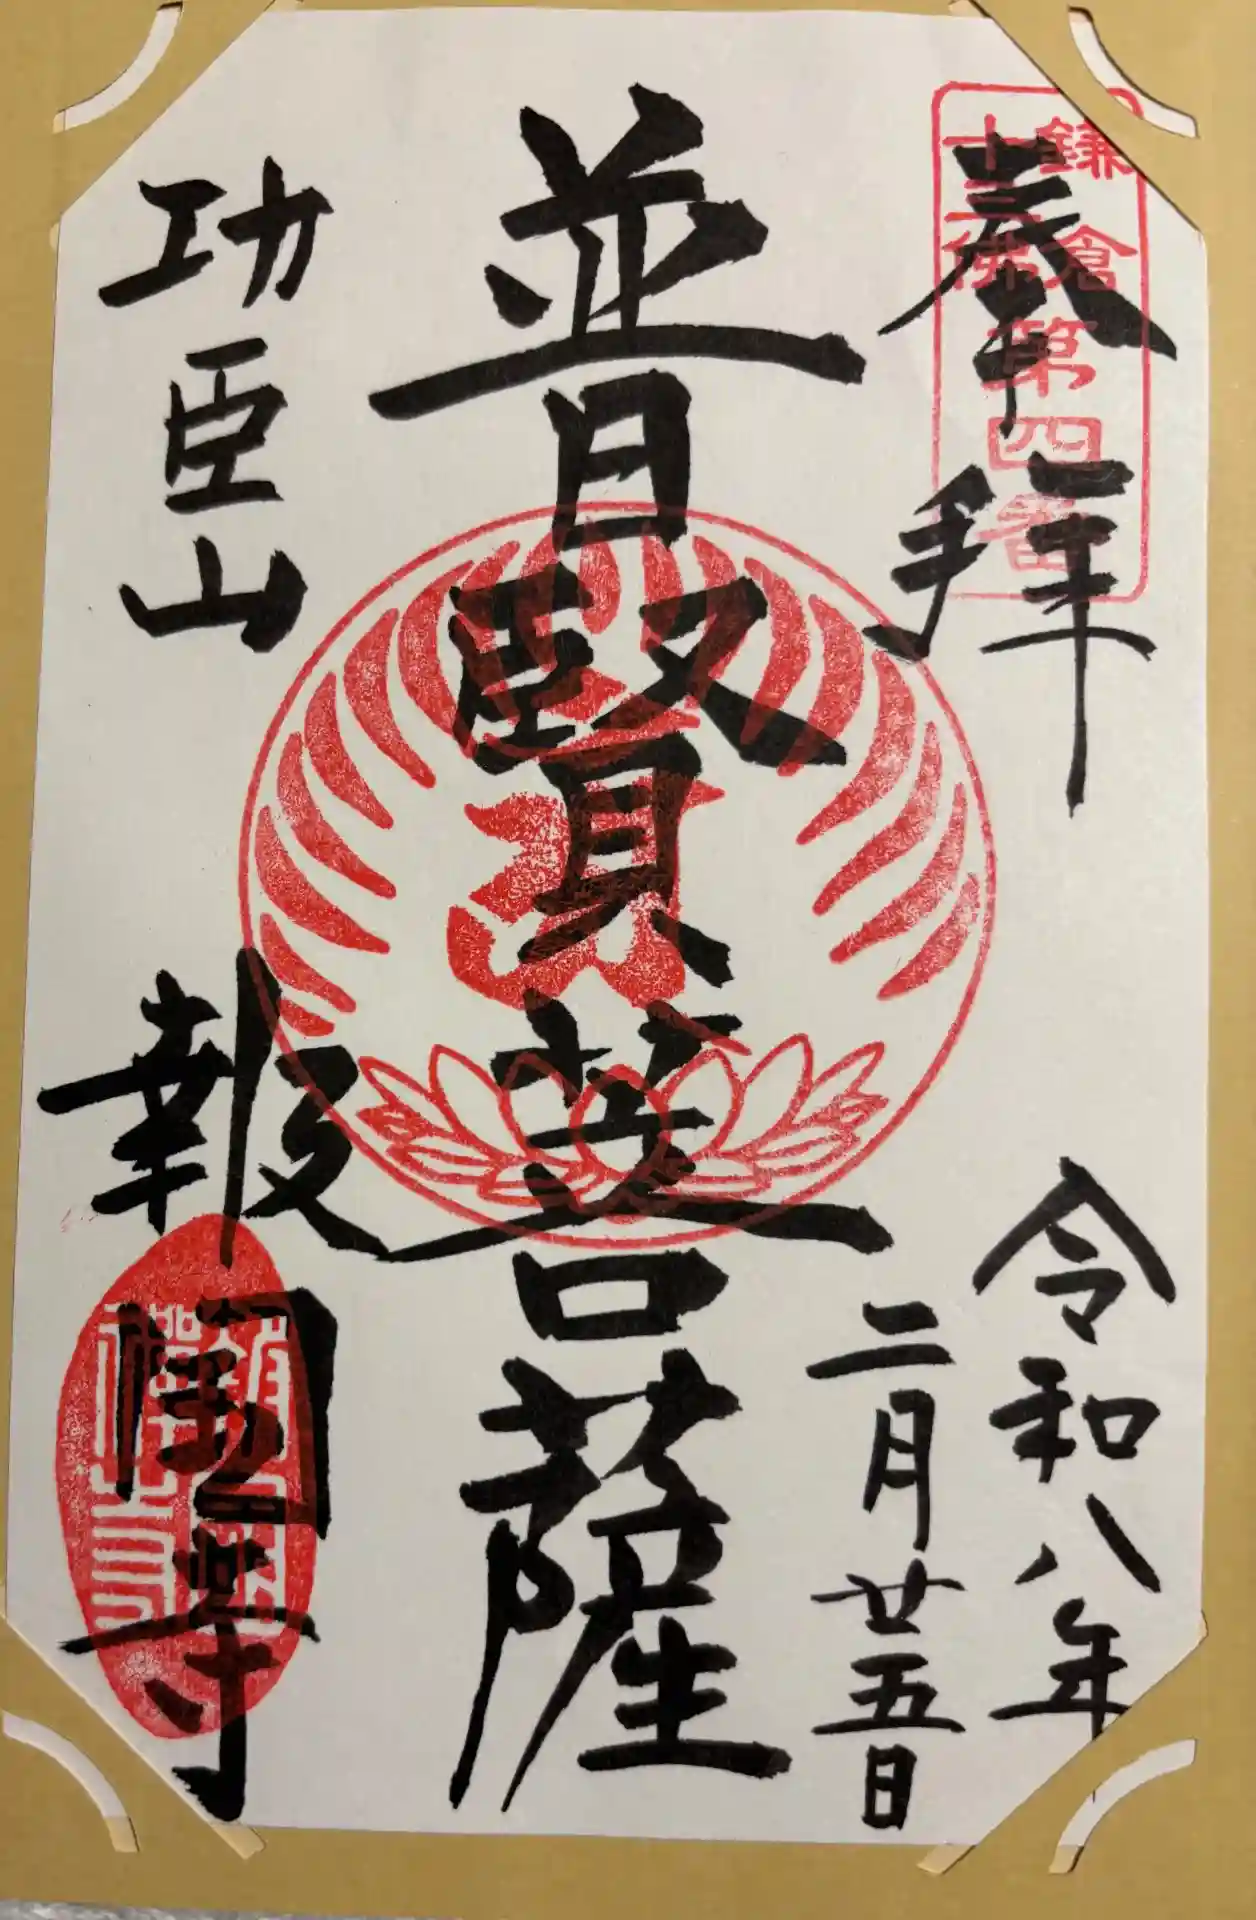 鎌倉
十三佛
第四番
奉拝
令和八年
二月廿五日
普賢菩薩
功臣山
報国寺